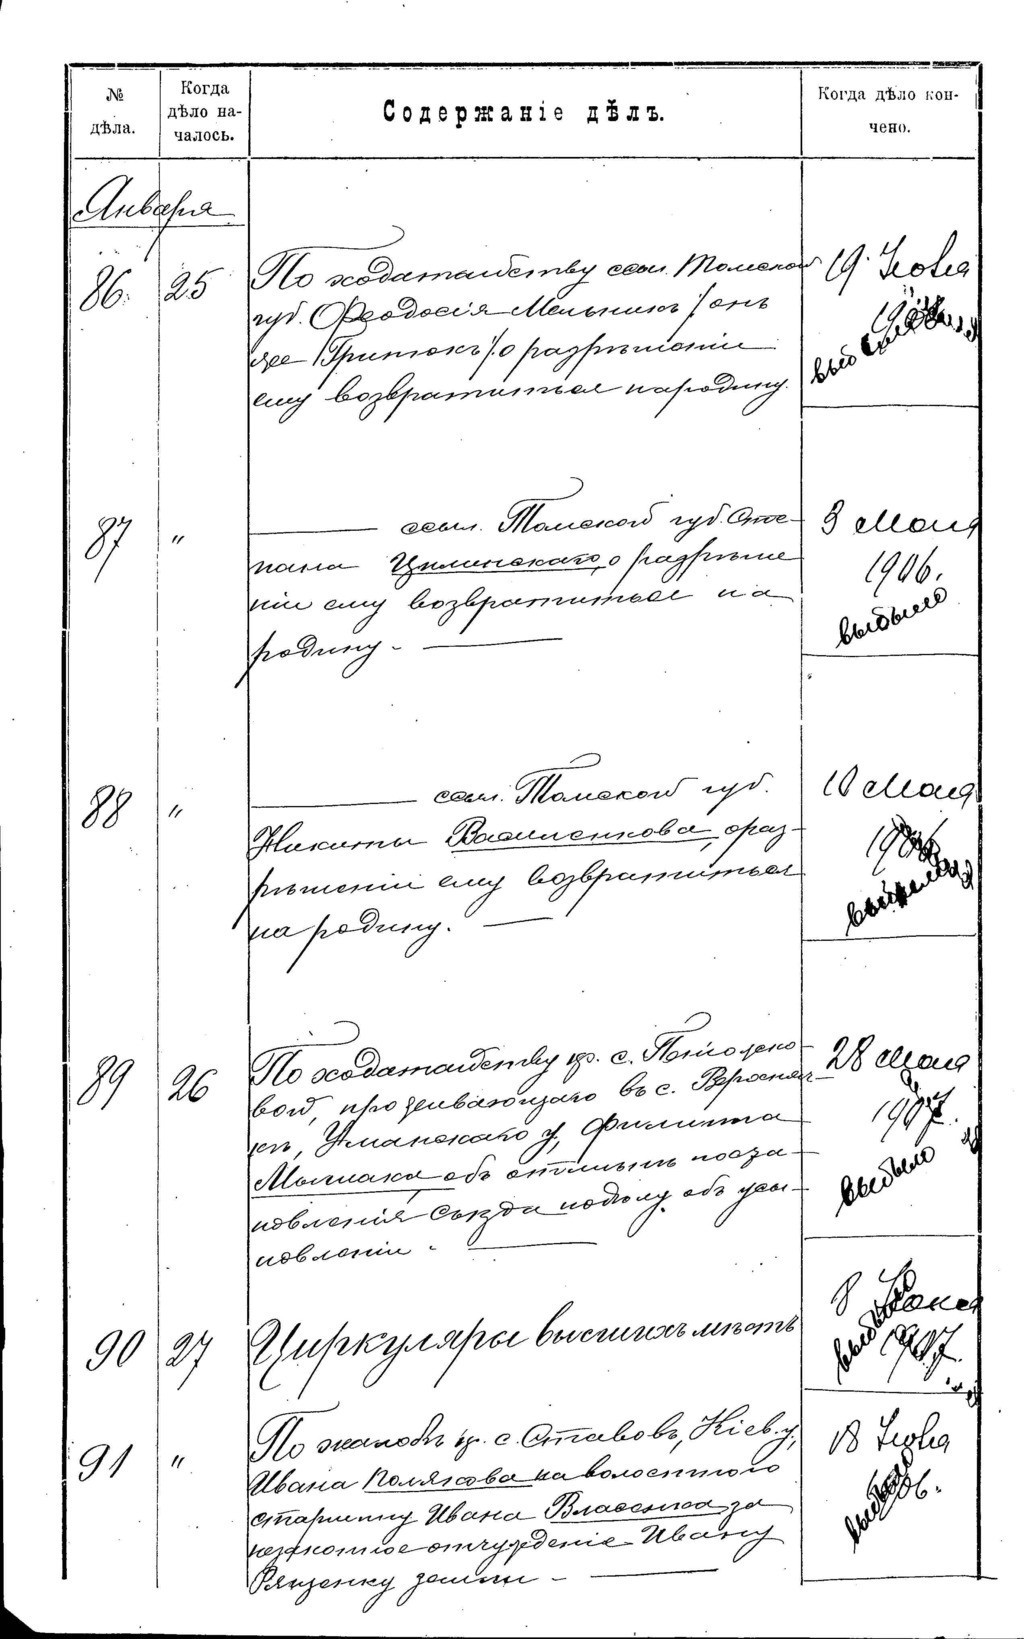 № дѣла.
Когда дѣло началось.
Содержаніе дѣлъ.
Когда дѣло кончено.
Января
86. 25 По ходатайству ссыл. Томской
губ. Феодосія Мельникъ /онъ
же Гритокъ/ о разрѣшеніи
ему возвратиться на родину.
19 Іюня
выбыло
87 " ссыл. Томской губ. Сте-
пана Цилинскаго, о разрѣше
ніи ему возвратиться на
родину. -
3 Мая
1906.
выбыло
88 " ссыл. Томской губ.
Никиты Василенкова, о раз-
рѣшеніи ему возвратиться
на родину.
10 Мая
1906
89 26 По ходатайству кр. с.
вой, проживающаго въ с.
кѣ, Уманскаго у, Филиппа
об отмѣнѣ поста-
новленія Съѣзда по дѣлу объ усы-
новленіи -
28 Мая
1907.
выбыло
90 27 Циркуляры высшихъ мѣстъ
8 Іюня
выбыло
1907.
91 " По жалобѣ кр. с. Ставовъ, Кіев. у,
Ивана Полякова на волостного
старшину Ивана Власенка за
незаконное отчужденіе Ивану
Рященку земли -
18 Іюня
06.
выбыло